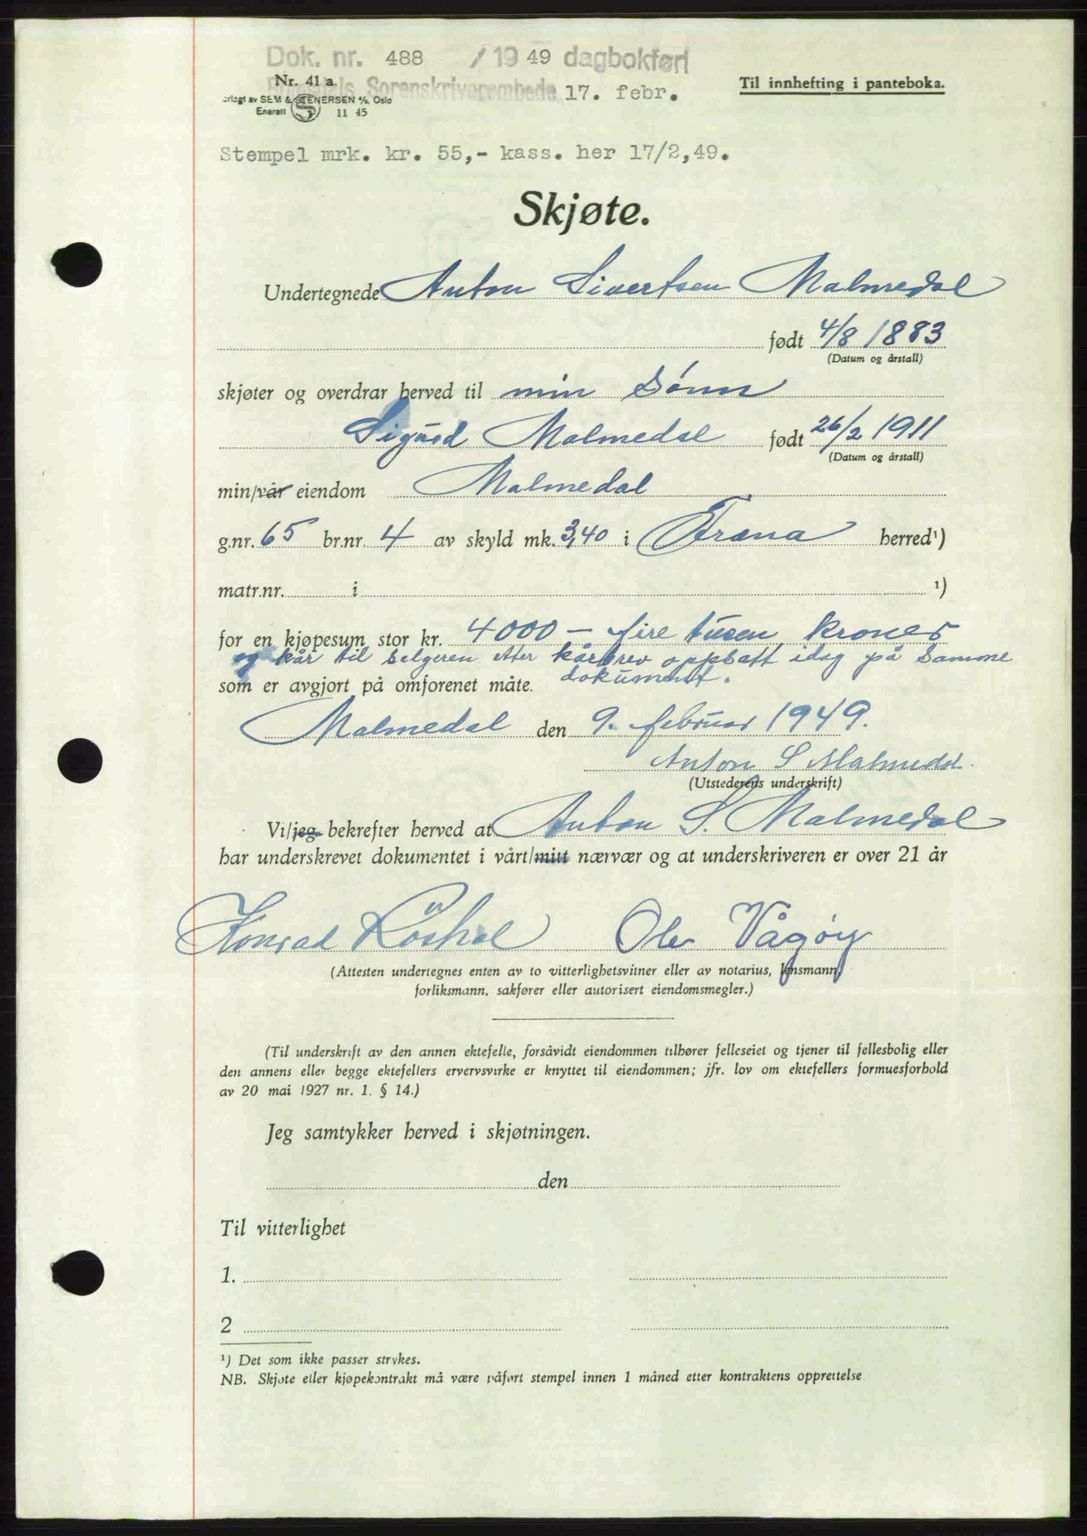 Dok. nr. 488 / 19 49 dagbokført
Nr. 41 a. Sorenskriverembede 17. febr.
Til innhefting i panteboka.
SEM & STENERSEN A/S, Oslo
Enerett S 11 45
Stempel mrk. kr. 55,- kass. her 17/2,49.
Skjøte.
Undertegnede Anton Sivertsen Malmedal
født 4/8 1883
(Datum og årstall)
skjøter og overdrar herved til min Sønn
Sigurd Malmedal født 26/2 1911
(Datum og årstall)
min/vår eiendom Malmedal
g.nr. 65 br.nr 4 av skyld mk. 3,40 i Fræna herred¹)
matr.nr. i ¹)
for en kjøpesum stor kr. 4000 – fire tusen kroner
og kår til selgeren etter kårbrev oppsatt idag på samme
som er avgjort på omforenet måte. dokument.
Malmedal den 9. februar 1949.
Anton S Malmedal.
(Utstederens underskrift)
Vi/jeg bekrefter herved at Anton S. Malmedal
har underskrevet dokumentet i vårt/mitt nærvær og at underskriveren er over 21 år
Konrad Ole Vågøy
(Attesten undertegnes enten av to vitterlighetsvitner eller av notarius, lensmann,
forliksmann, sakfører eller autorisert eiendomsmegler.)
(Til underskrift av den annen ektefelle, forsåvidt eiendommen tilhører felleseiet og tjener til fellesbolig eller
den annens eller begge ektefellers ervervsvirke er knyttet til eiendommen; jfr. lov om ektefellers formuesforhold
av 20 mai 1927 nr. 1. § 14.)
Jeg samtykker herved i skjøtningen.
den
Til vitterlighet
1.
2
¹) Det som ikke passer strykes.
NB. Skjøte eller kjøpekontrakt må være påført stempel innen 1 måned etter kontraktens opprettelse